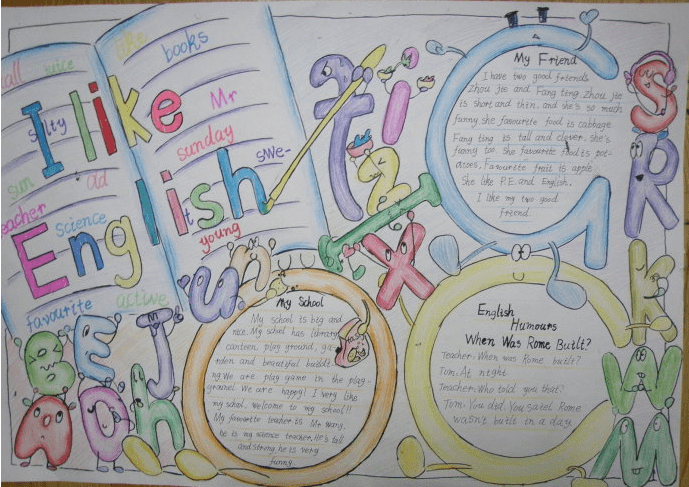 I like
English
tall juice
like
books
salty
Mr
sunday
sun
ad
swe-
teacher
science
it
young
favourite
active
My Friend
I have two good friends
Zhou jie and Fang ting Zhou jie
is short and thin. and she's so much
funny she favourite food is cabbage.
Fang ting is tall and clever. she's
funny too. She favourite food is pot-
atoes, Favourite fruit is apple.
She like P.E. and English.
I like my two good
Friend.
My School
My school is big and
nice. My school has library
canteen play ground, ga-
rden and beautiful buildi
ng We are play game in the play-
ground. We are happy! I very like
my school. welcome to my school!!
My favourite teacher is Mr Wang,
he is my science teacher. He's tall
and strong, he is very
funny.
English
Humours
When Was Rome Built?
Teacher: When was Rome built?
Tom: At night.
Teacher: Who told you that?
Tom: You did. You saied Rome
wasn't built in a day.
t i z
I X
S
R
K
W
M
u n
B E J
A O h